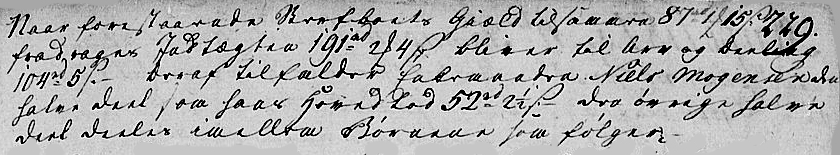 Naar forestaaende Sterfboets Giæld tilsamen 87rd 1/ 15s 229.
fradrages Indtægten 191rd 2/ 4s bliver til Arv og deeling
104rd 5s - deraf tilfalder Enkemanden Niels Mogensen den
halve deel som hans Hoved Lod 52rd 2½s - den øvrige halve
deel deeles imellem Børnene som følger